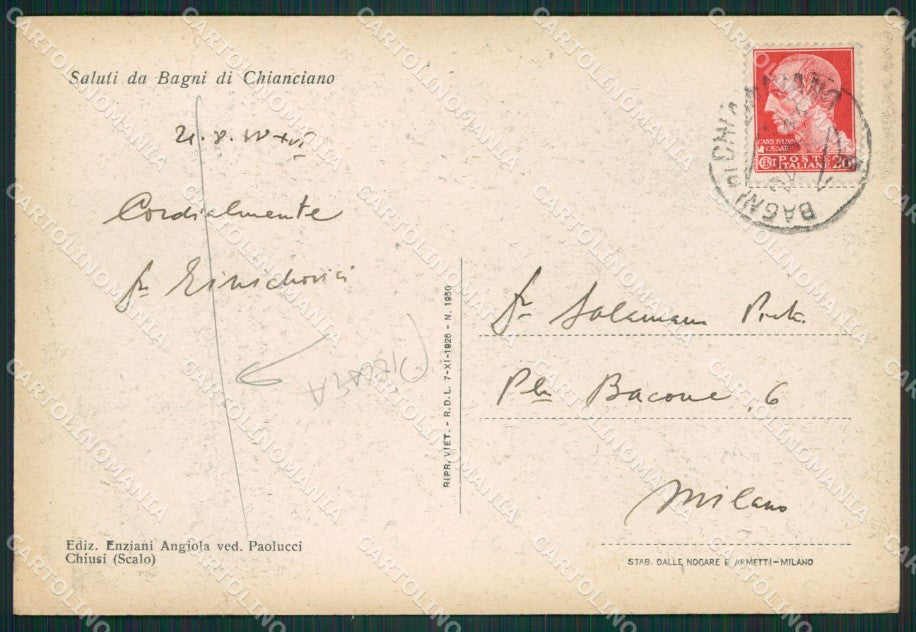 Saluti da Bagni di Chianciano
Cordialmente
Ediz. Enziani Angiola ved. Paolucci
Chiusi (Scalo)
RIPR. VIET. - R.D.L. 7-XI-1925 - N. 1950
CAIVS IVLIVS
CAESAR
CENT. POSTE 20
ITALIANE
BAGNI DI CHIANCIANO
Bacone, 6
Milano
STAB. DALLE NOGARE E ARMETTI - MILANO
PIEGATA
CARTOLINOMANIA